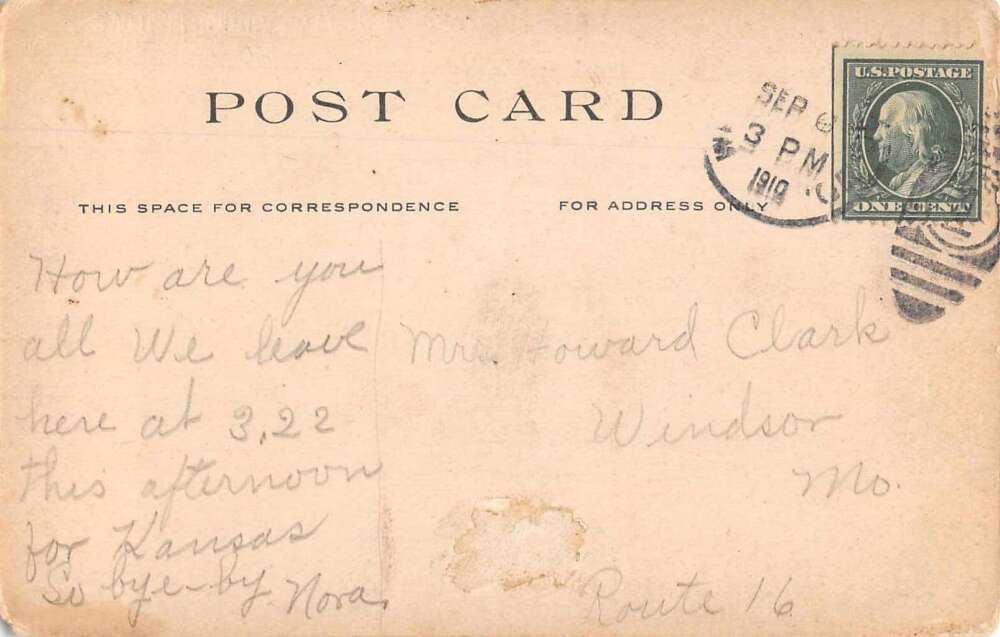 POST CARD
THIS SPACE FOR CORRESPONDENCE
FOR ADDRESS ONLY
SEP 6
3 PM
1910
MO.
U.S.POSTAGE
ONE CENT
How are you
all We leave
here at 3,22
this afternoon
for Kansas
So bye-by
Nora.
Mrs. Howard Clark
Windsor
Mo.
Route 16